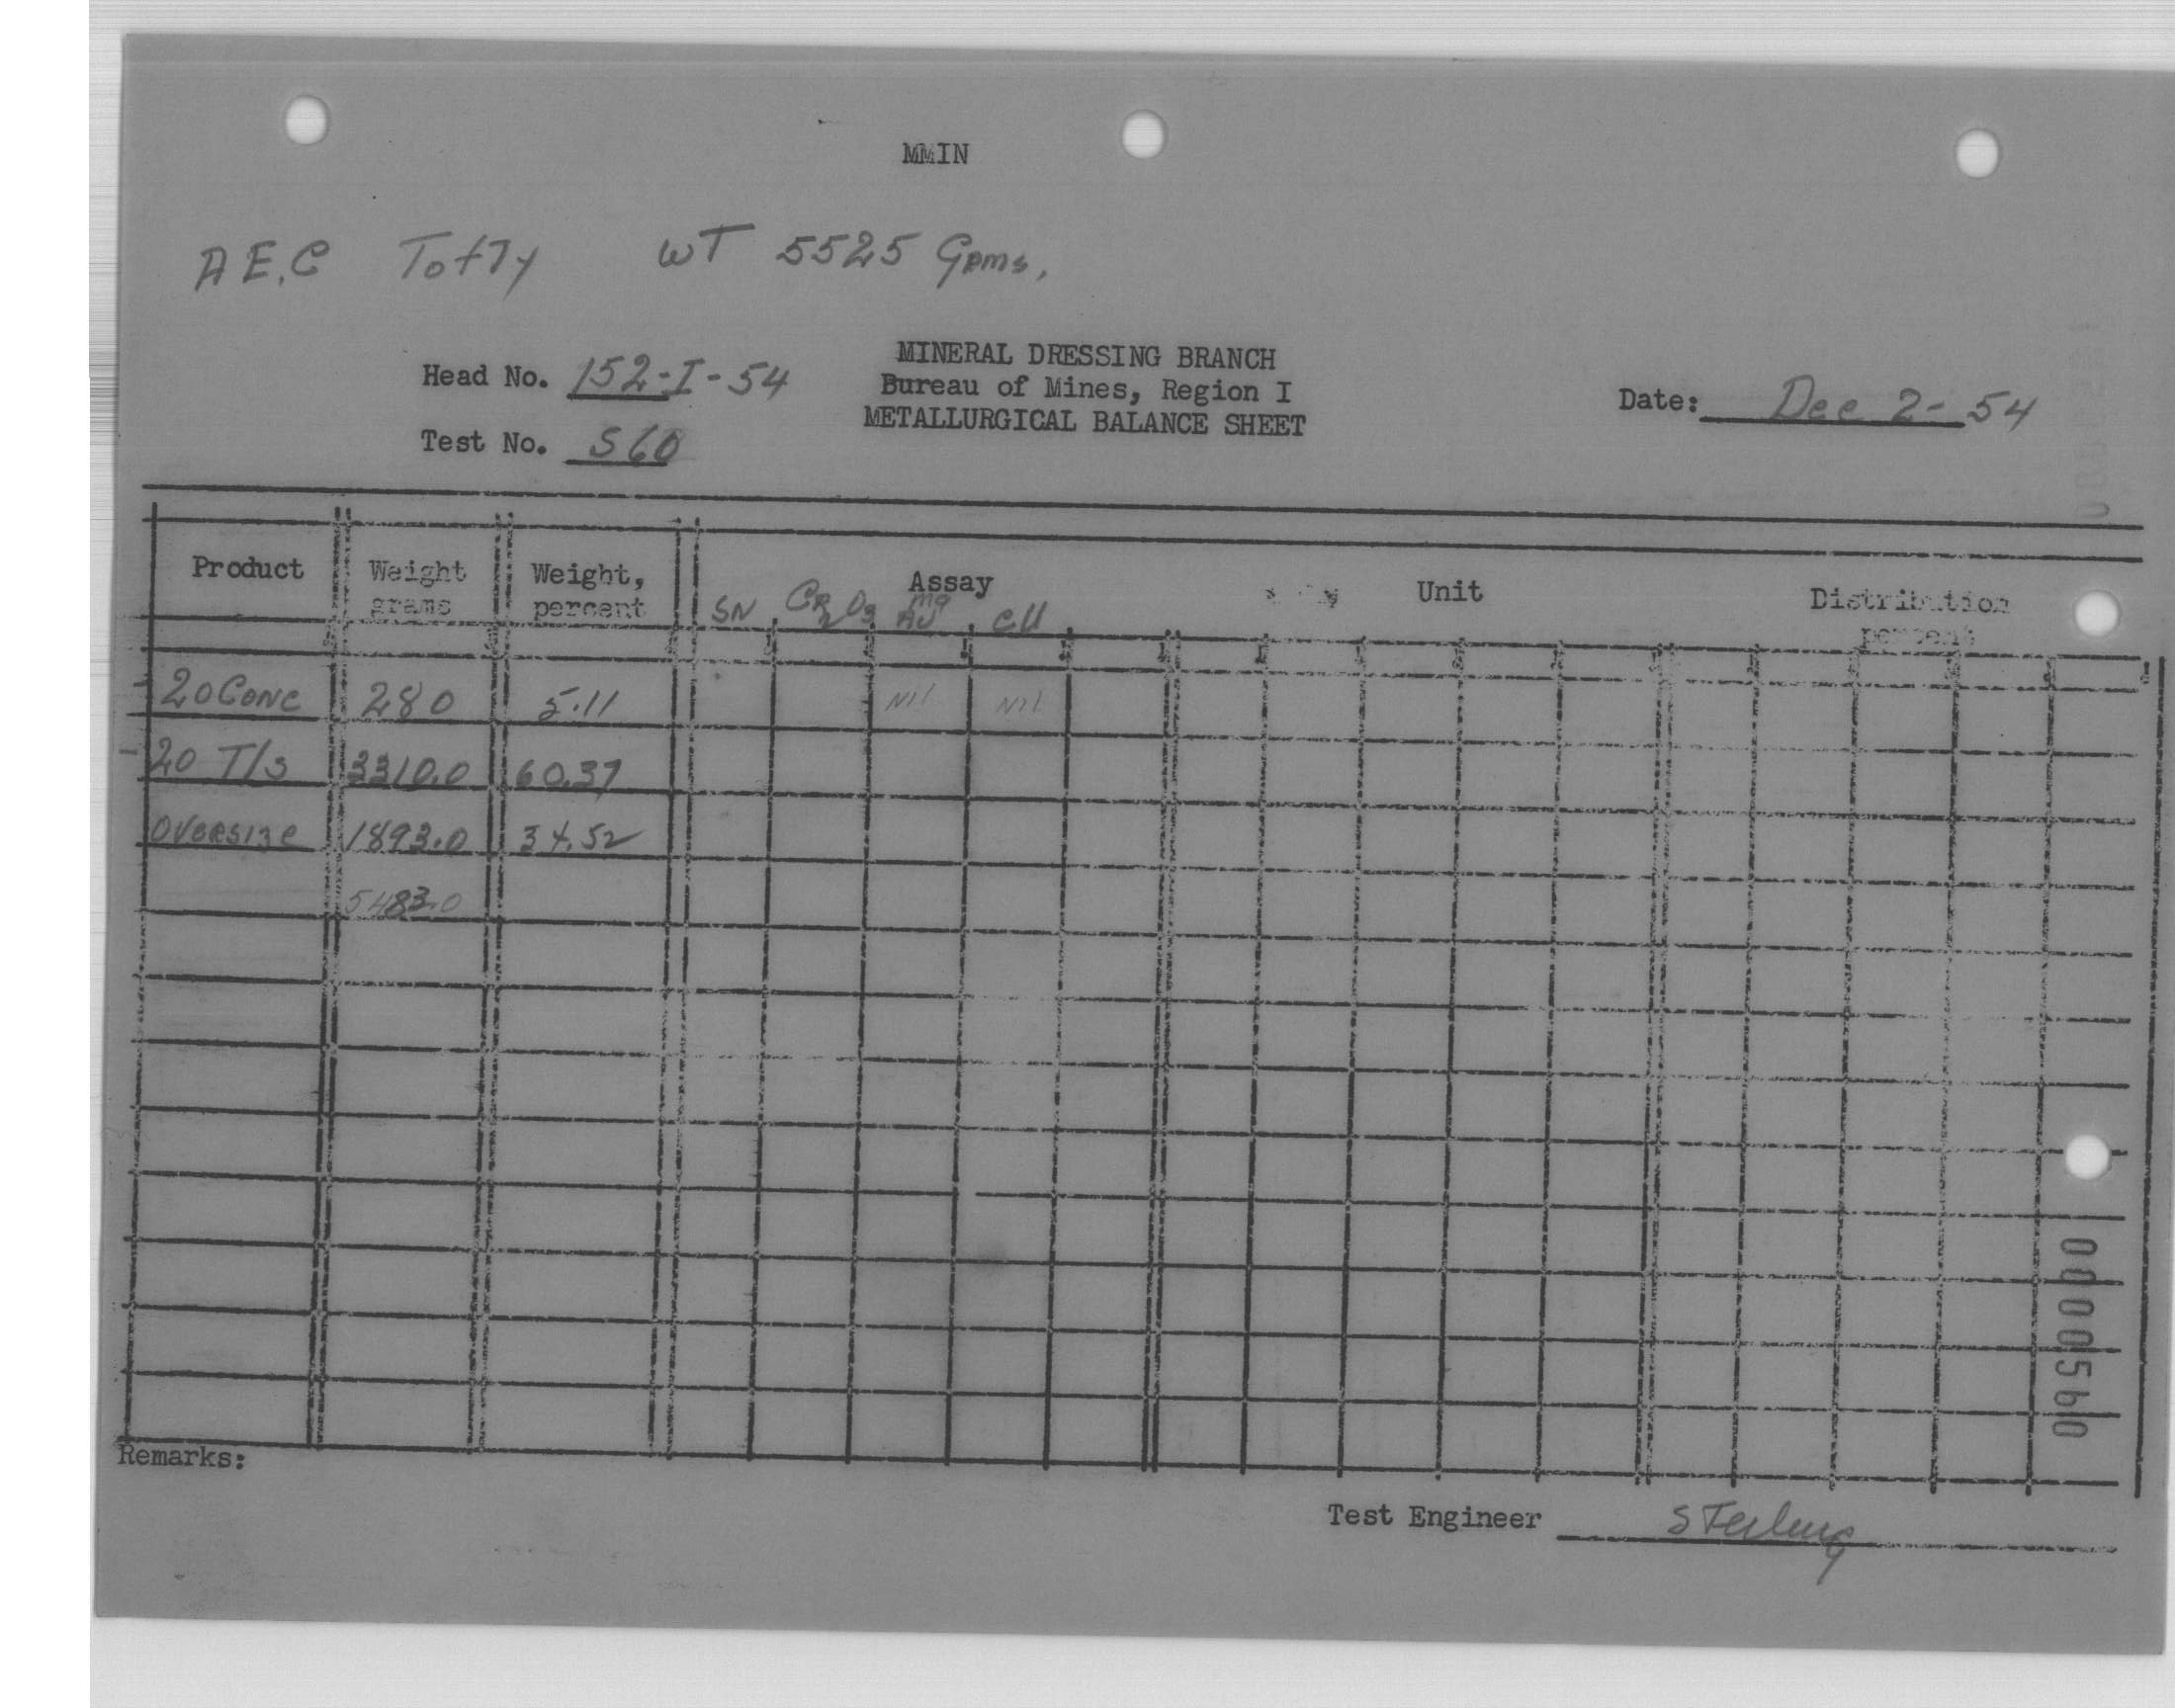 MMIN
A E.C Tofty WT 5525 Grms.
Head No. 152-I-54
Test No. S60
MINERAL DRESSING BRANCH
Bureau of Mines, Region I
METALLURGICAL BALANCE SHEET
Date: Dec 2-54
Product Weight grams Weight, percent Assay Unit Distribution percent
SN CR2O3 Mg AU CU
20 Conc 280 5.11 Nil Nil
-20 T/s 3310.0 60.37
Oversize 1893.0 34.52
5483.0
0000560
Remarks:
Test Engineer Sterling